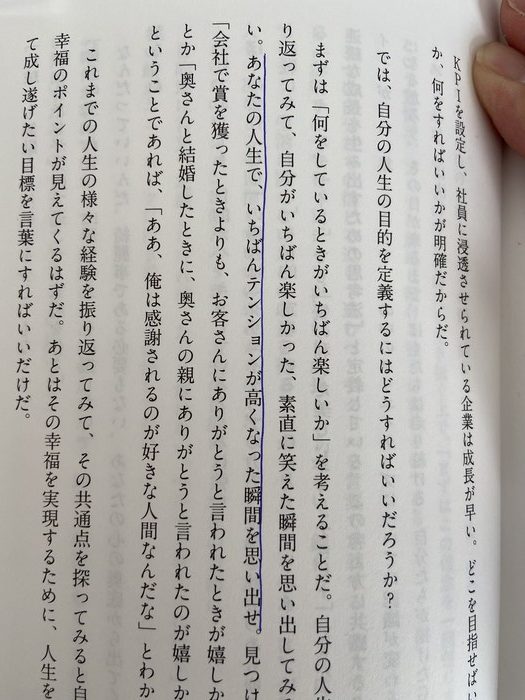 KPIを設定し、社員に浸透させられている企業は成長が早い。どこを目指せばい
か、何をすればいいかが明確だからだ。
では、自分の人生の目的を定義するにはどうすればいいだろうか？
まずは「何をしているときがいちばん楽しいか」を考えることだ。自分の人生
り返ってみて、自分がいちばん楽しかった、素直に笑えた瞬間を思い出してみ
い。あなたの人生で、いちばんテンションが高くなった瞬間を思い出せ。見つけ
「会社で賞を獲ったときよりも、お客さんにありがとうと言われたときが嬉しか
とか「奥さんと結婚したときに、奥さんの親にありがとうと言われたのが嬉しか
ということであれば、「ああ、俺は感謝されるのが好きな人間なんだな」とわか
これまでの人生の様々な経験を振り返ってみて、その共通点を探ってみると自
幸福のポイントが見えてくるはずだ。あとはその幸福を実現するために、人生を
て成し遂げたい目標を言葉にすればいいだけだ。